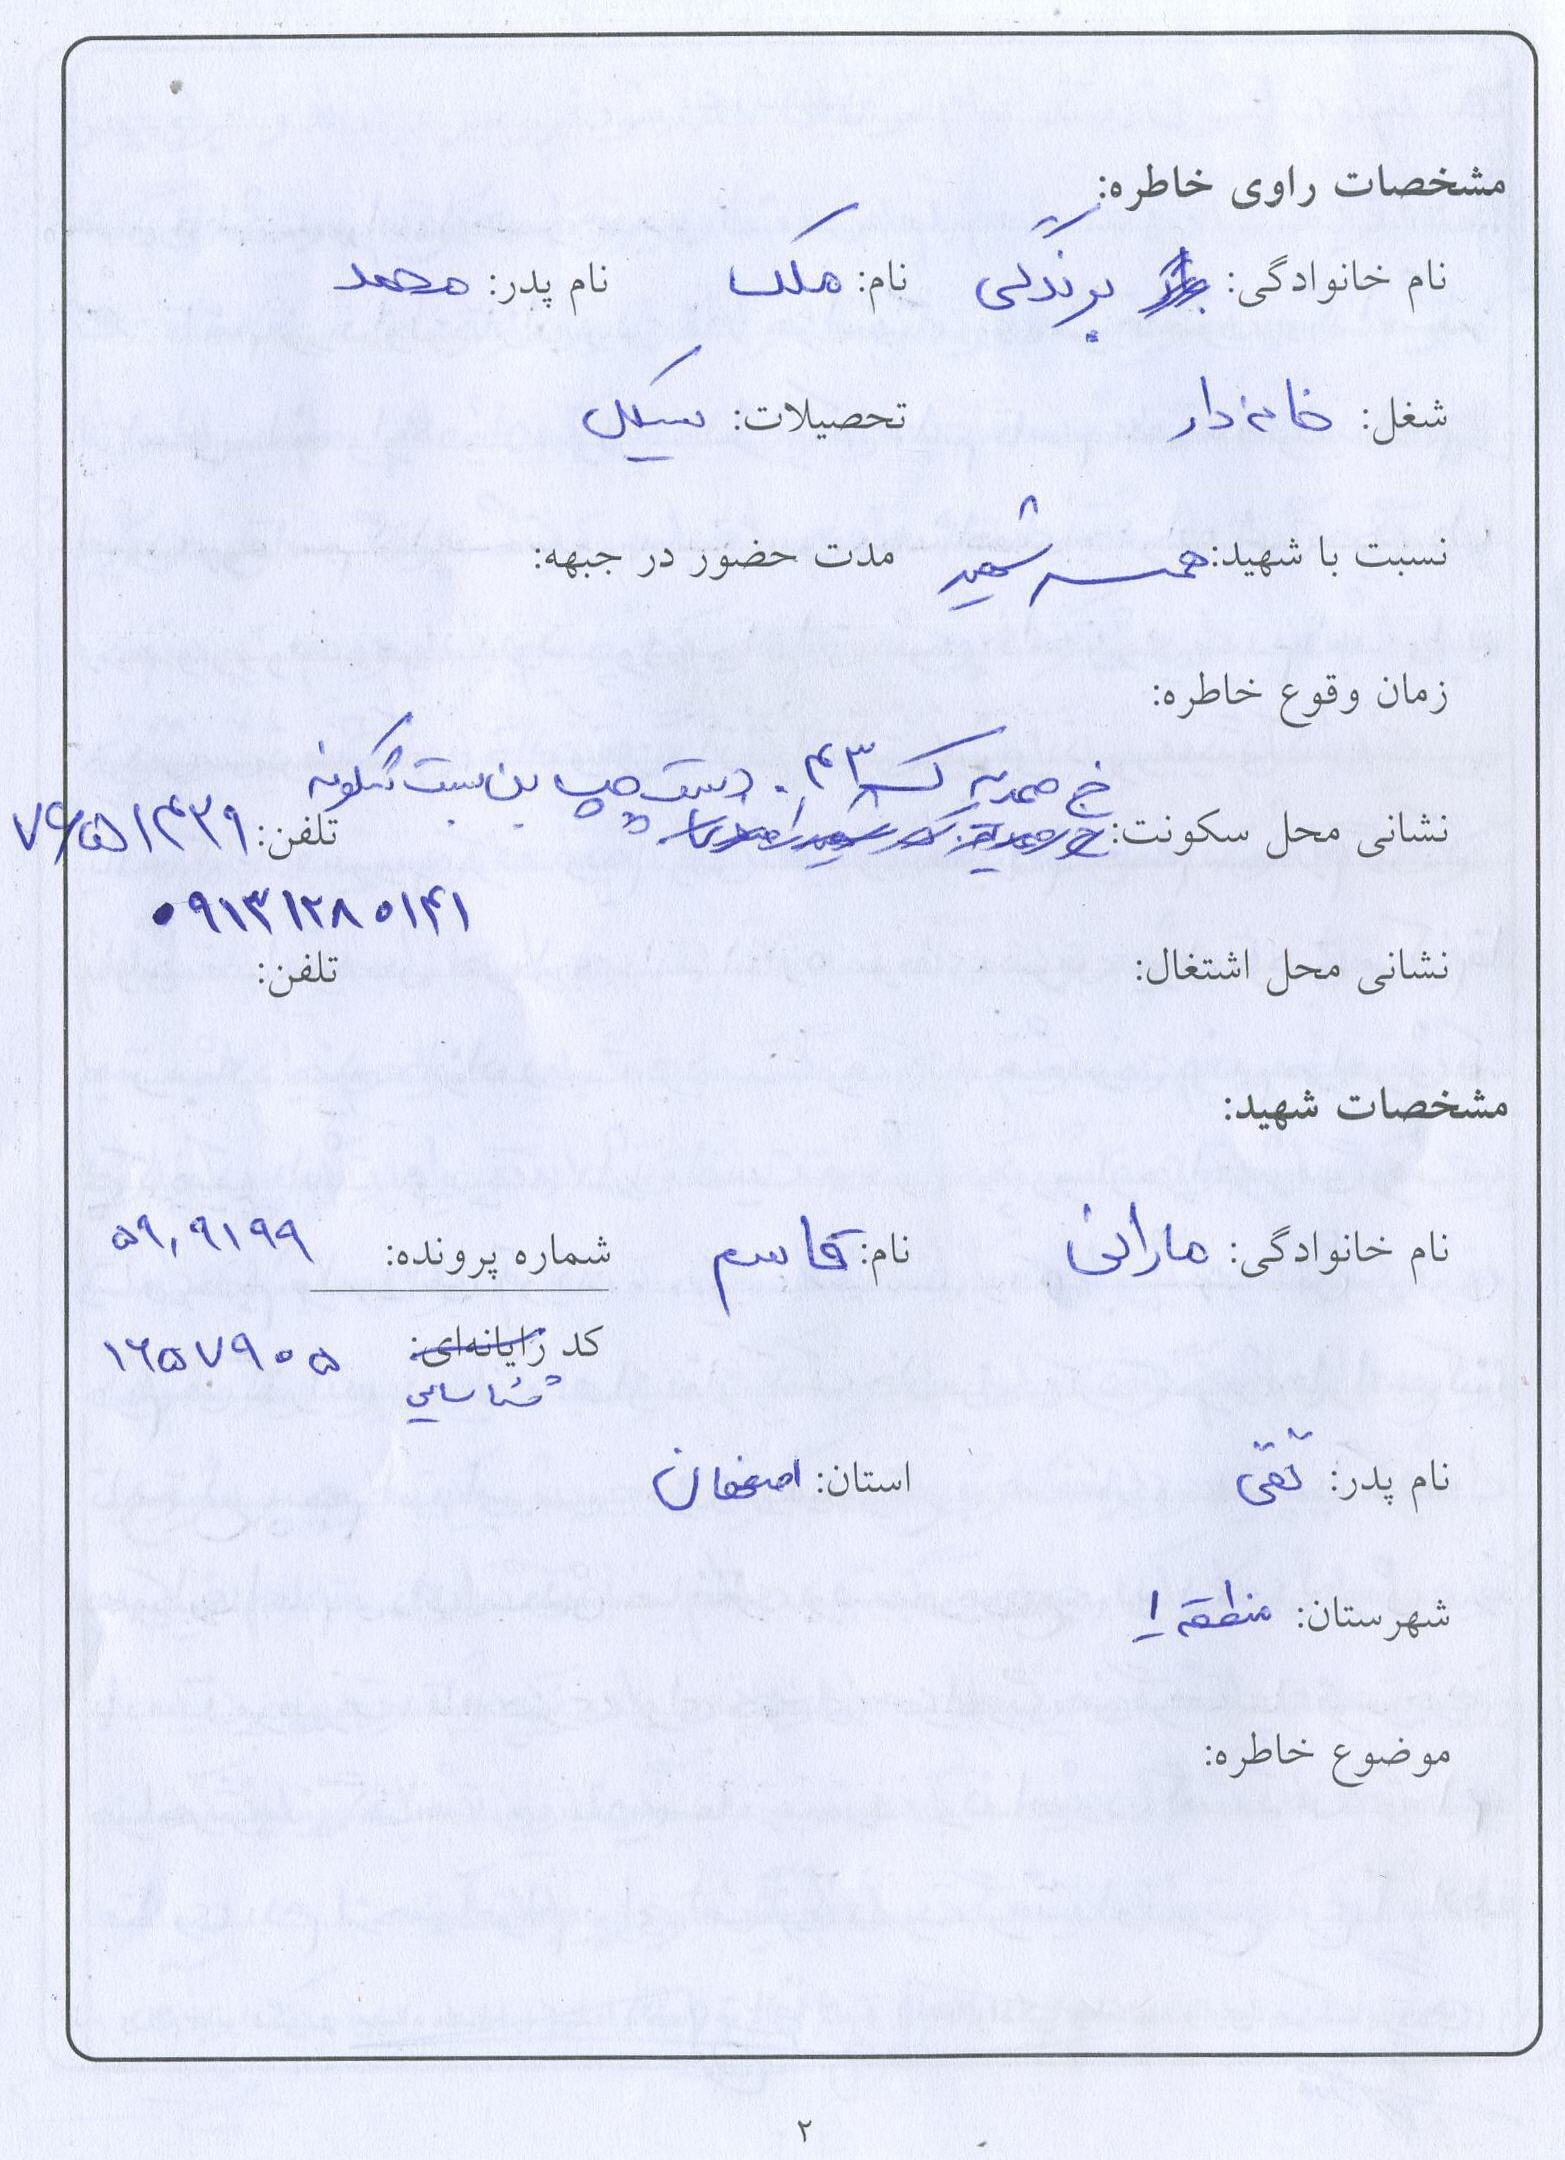 مشخصات راوی خاطره:
نام خانوادگی: برندگی نام: ملک نام پدر: محمد
شغل: خانه دار تحصیلات: سیکل
نسبت با شهید: همسر شهید مدت حضور در جبهه:
زمان وقوع خاطره:
خ صمدیه ک ۴۳. دست چپ بن بست شکونه
نشانی محل سکونت: تلفن: ۷۶۵۱۴۲۹
۰۹۱۳۱۲۸۰۱۴۱
نشانی محل اشتغال: تلفن:
مشخصات شهید:
نام خانوادگی: مارانی نام: قاسم شماره پرونده: ۵۹,۹۱۹۹
کد رایانه‌ای: ۱۶۵۷۹۰۵
شناسایی
نام پدر: تقی استان: اصفهان
شهرستان: منطقه ۱
موضوع خاطره:
۲